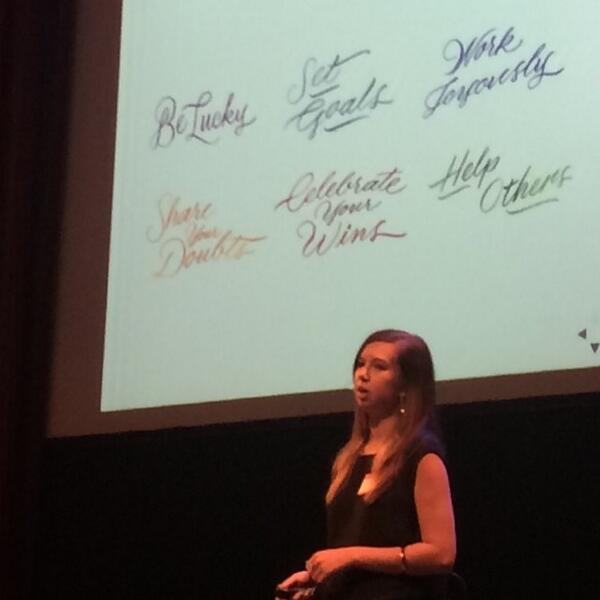 Be Lucky
Set
Goals
Work
Joyously
Share
Your
Doubts
Celebrate
Your
Wins
Help
Others